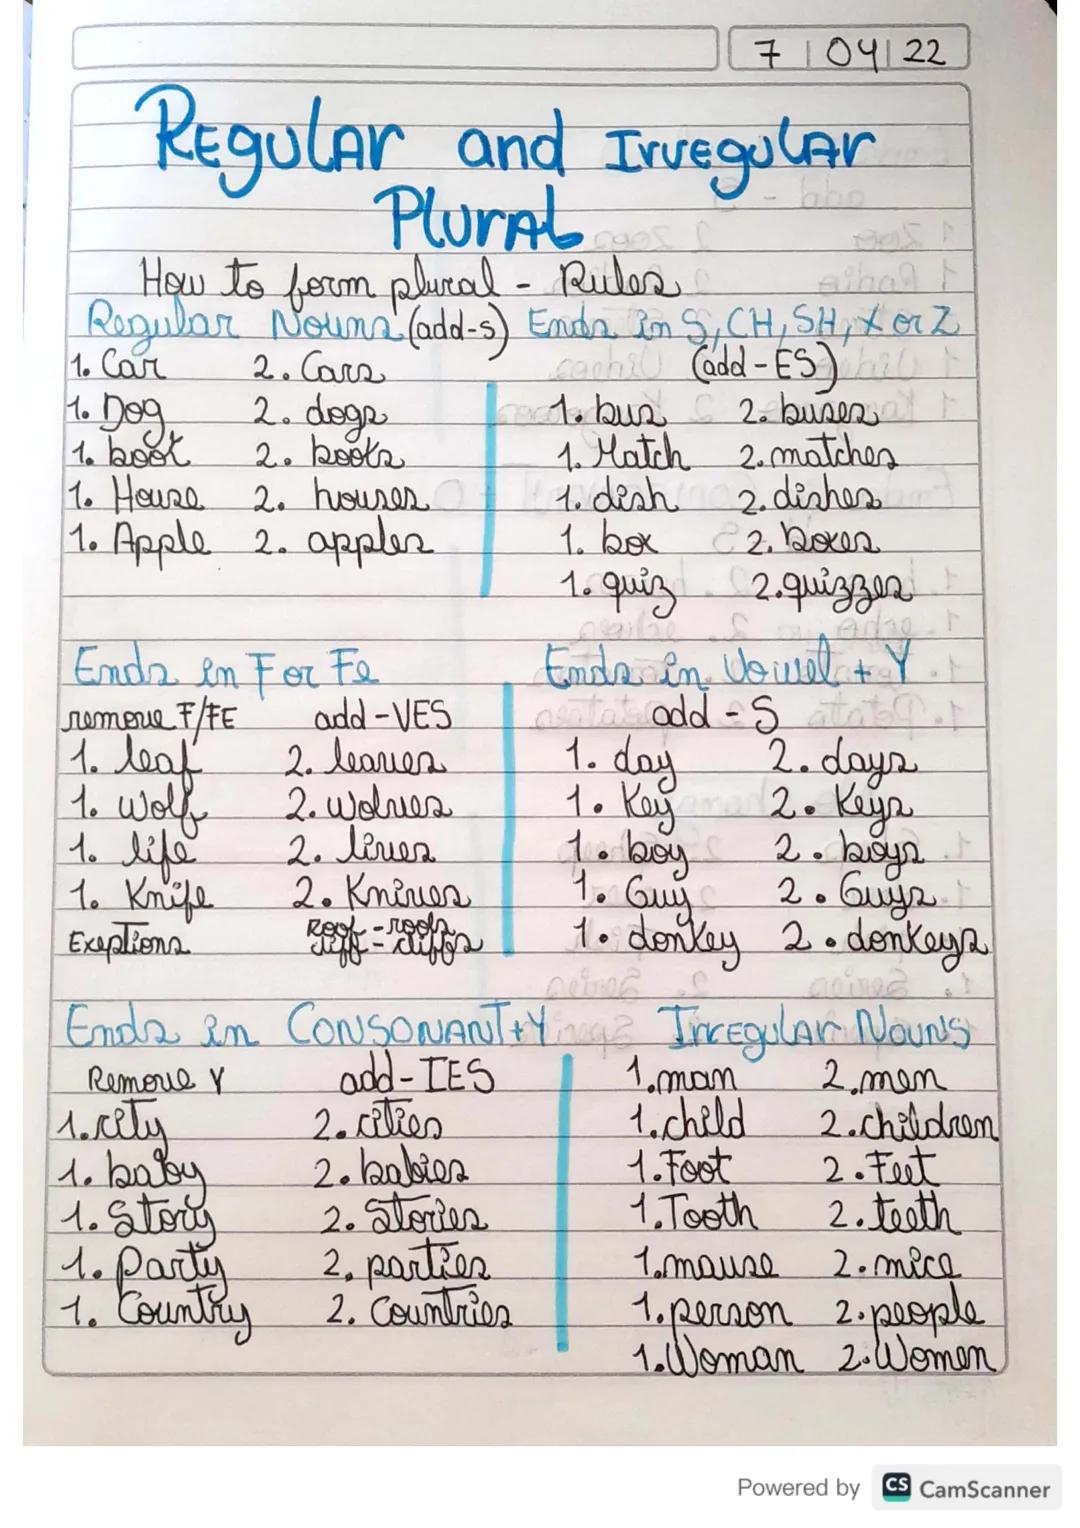 7 | 04 | 22
Regular and Irregular
Plural
How to form plural - Rules
Regular Nouns (add-s)
1. Car 2. Cars
1. Dog 2. dogs
1. book 2. books
1. House 2. houses
1. Apple 2. apples
Ends in S, CH, SH, X or Z
(add - ES)
1. bus 2. buses
1. Match 2. matches
1. dish 2. dishes
1. box 2. boxes
1. quiz 2. quizzes
Ends in F or Fe
remove F/FE add -VES
1. leaf 2. leaves
1. wolf 2. wolves
1. life 2. lives
1. Knife 2. Knives
Exeptions Roof - roofs
cliff - cliffs
Ends in Vowel + Y
add - S
1. day 2. days
1. Key 2. Keys
1. boy 2. boys
1. Guy 2. Guys
1. donkey 2. donkeys
Ends in CONSONANT + Y
Remove Y add - IES
1. city 2. cities
1. baby 2. babies
1. Story 2. Stories
1. Party 2. parties
1. Country 2. Countries
Irregular Nouns
1. man 2. men
1. child 2. children
1. Foot 2. Feet
1. Tooth 2. teeth
1. mause 2. mice
1. person 2. people
1. Woman 2. Women
Powered by CS CamScanner